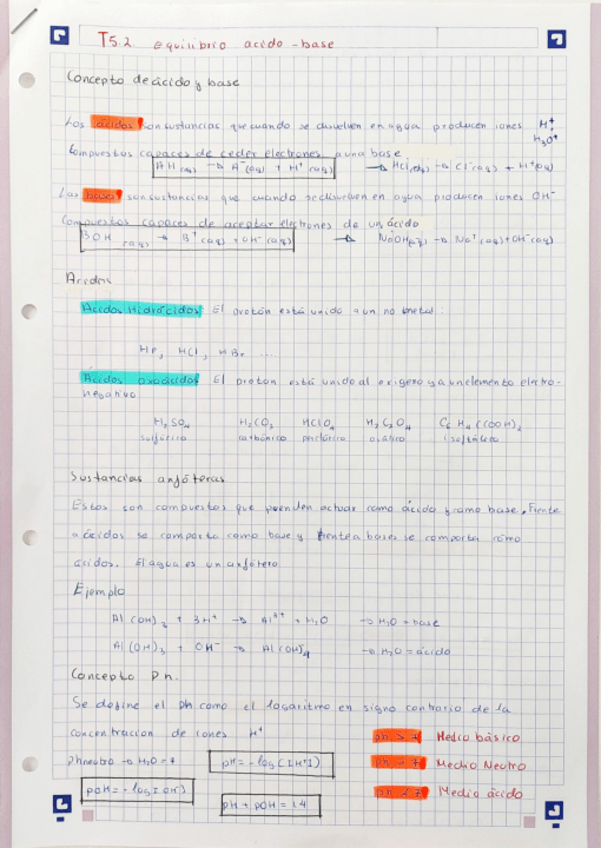 T5.2 equilibrio acido-base
Concepto de ácido y base
Los ácidos son sustancias que cuando se disuelven en agua producen iones H⁺
H₃O⁺
Compuestos capaces de ceder electrones a una base
AH (aq) → A⁻(aq) + H⁺(aq) → HCl(aq) → Cl⁻(aq) + H⁺(aq)
Las bases son sustancias que cuando se disuelven en agua producen iones OH⁻
Compuestos capaces de aceptar electrones de un ácido
BOH (aq) → B⁺(aq) + OH⁻(aq) → NaOH(aq) → Na⁺(aq) + OH⁻(aq)
Acidos
Acidos Hidrácidos El protón está unido a un no metal:
HF, HCl, HBr ....
Acidos oxoácidos El proton está unido al oxigeno y a un elemento electro-
negativo
H₂SO₄ H₂CO₃ HClO₄ H₂C₂O₄ C₆H₄(COOH)₂
sulfúrico carbónico perclórico oxálico isoftálico
Sustancias anfóteras
Estos son compuestos que pueden actuar como ácido y como base. Frente
a ácidos se comporta como base y frente a bases se comporta como
ácidos. El agua es un anfótero
Ejemplo
Al(OH)₃ + 3H⁺ → Al³⁺ + H₂O → H₂O = base
Al(OH)₃ + OH⁻ → Al(OH)₄⁻ → H₂O = ácido
Concepto pH.
Se define el ph como el logaritmo en signo contrario de la
concentracion de iones H⁺
ph > 7 Medio básico
ph neutro → H₂O = 7 pH = -log([H⁺])
ph = 7 Medio Neutro
pOH = -log[OH⁻] pH + pOH = 14
ph < 7 Medio ácido